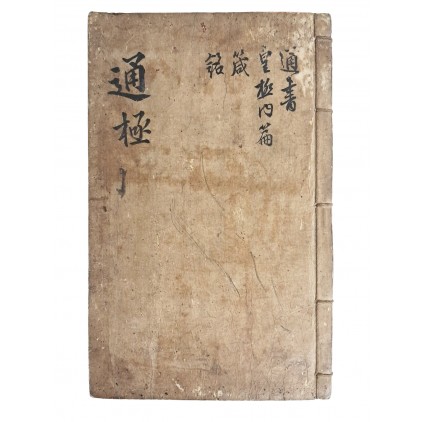 通書
皇極內篇
箴
銘
通極